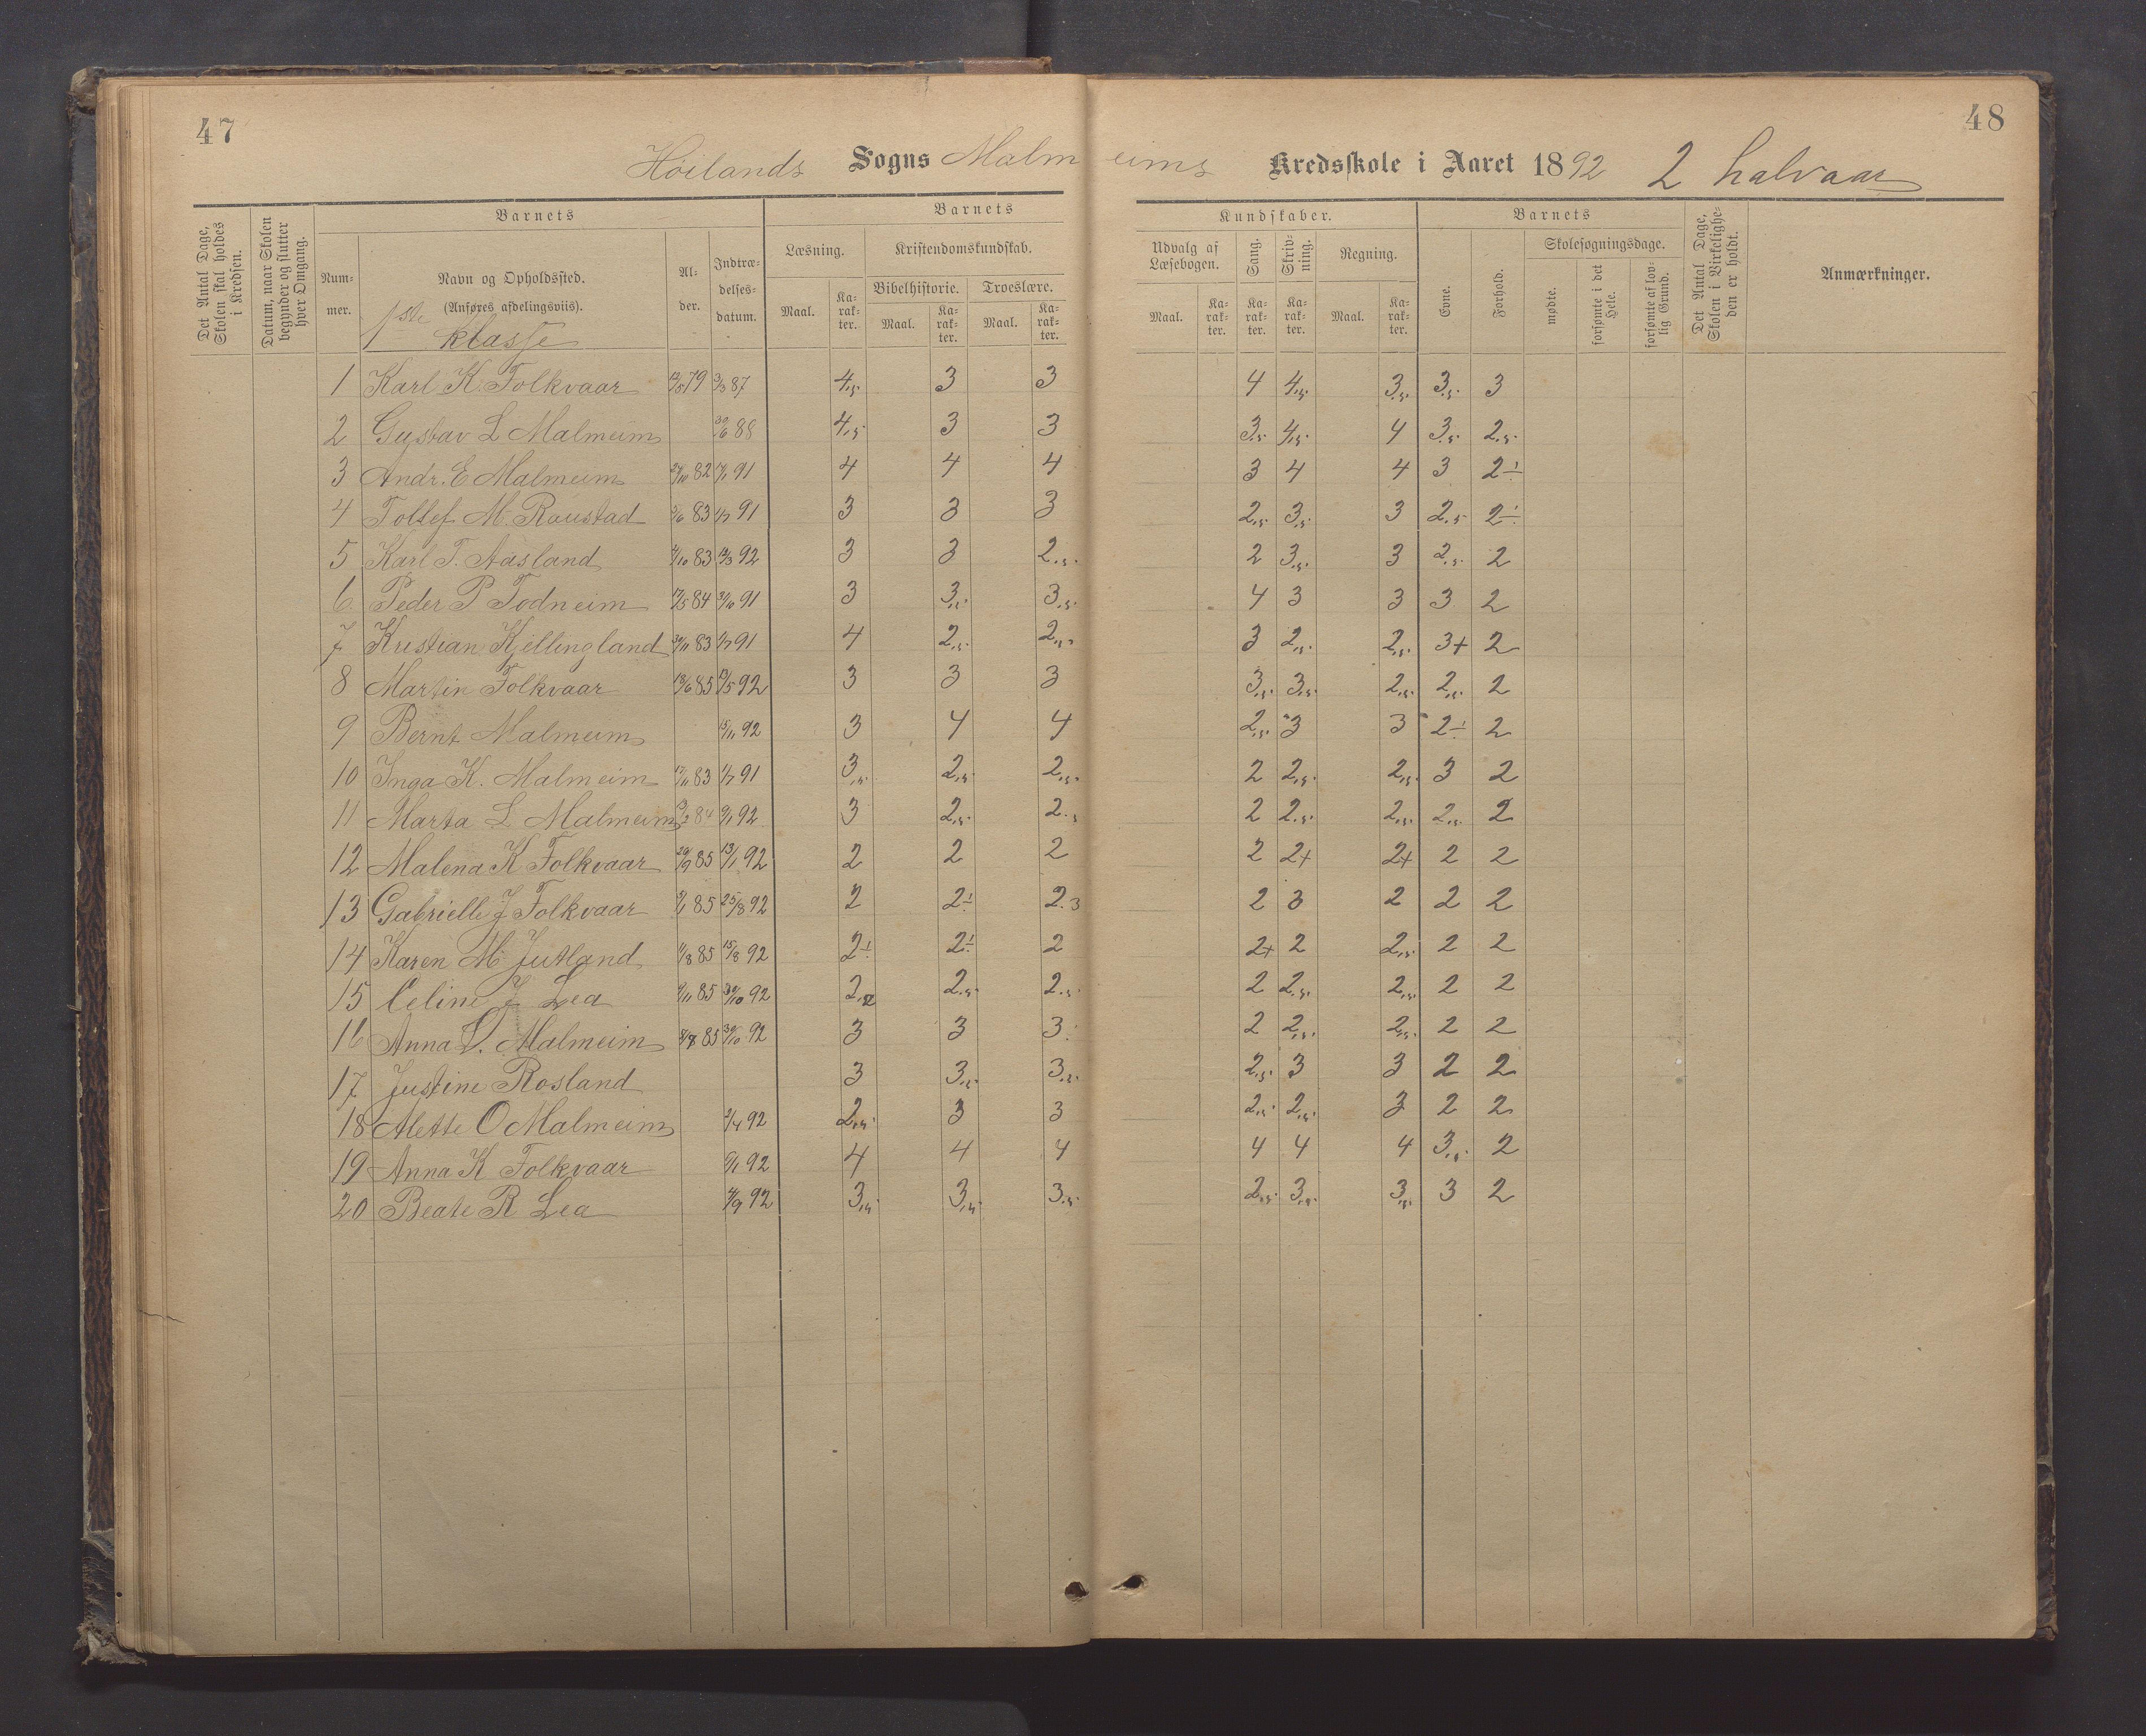 47
48
Höilands Sogns Malmeims Kredsskole i Aaret 1892 2 halvaar
Det Antal Dage, Skolen skal holdes i Kredsen.
Datum, naar Skolen begynder og slutter hver Omgang.
Barnets
Barnets
Kundskaber.
Barnets
Det Antal Dage, Skolen i Virkeligheden er holdt.
Anmærkninger.
Nummer.
Navn og Opholdssted.
(Anføres afdelingsviis).
1ste klasse
Alder.
Indtrædelsesdatum.
Læsning.
Kristendomskundskab.
Bibelhistorie.
Troeslære.
Udvalg af Læsebogen.
Sang.
Skrivning.
Regning.
Evne.
Forhold.
Skolesøgningsdage.
mødte.
forsømte i det Hele.
forsømte af lovlig Grund.
Maal. Karakter. Maal. Karakter. Maal. Karakter. Maal. Karakter. Karakter. Karakter. Maal. Karakter.
1 Karl K. Folkvaar 79 3/3 87 4,5 3 3 4 4,5 3,5 3,5 3
2 Gustav L Malmeim 30/6 88 4,5 3 3 3,5 4,5 4 3,5 2,5
3 Andr. E Malmeim 82 91 4 4 4 3 4 4 3 2÷
4 Tollef M. Raustad 83 91 3 3 3 2,5 3,5 3 2,5 2÷
5 Karl T. Aasland 83 92 3 3 2,5 2 3,5 3 2,5 2
6 Peder P Todneim 84 91 3 3,5 3,5 4 3 3 3 2
7 Kristian Kjellingland 83 91 4 2,5 2,5 3 2,5 2,5 3+ 2
8 Martin Folkvaar 85 92 3 3 3 3,5 3,5 2,5 2,5 2
9 Bernt Malmeim 15/11 92 3 4 4 2,5 3 3 2÷ 2
10 Inga K. Malmeim 83 91 3,5 2,5 2,5 2 2,5 2,5 3 2
11 Marta L Malmeim 84 92 3 2,5 2,5 2 2,5 2,5 2,5 2
12 Malena K Folkvaar 85 13/1 92 2 2 2 2 2+ 2+ 2 2
13 Gabrielle J Folkvaar 85 23/8 92 2 2÷ 2.3 2 3 2 2 2
14 Karen M. Jutland 85 15/8 92 2÷ 2÷ 2 2+ 2 2,5 2 2
15 Celine J Lea 85 30/10 92 2,2 2,5 2,5 2 2,5 2,5 2 2
16 Anna D. Malmeim 85 30/10 92 3 3 3 2 2,5 2,5 2 2
17 Justine Rosland 3 3,5 3,5 2,5 3 3 2 2
18 Mette O Malmeim 92 2,5 3 3 2,5 2,5 3 2 2
19 Anna K Folkvaar 92 4 4 4 4 4 4 3,5 2
20 Beate R Lea 92 3,5 3,5 3,5 2,5 3,5 3,5 3 2